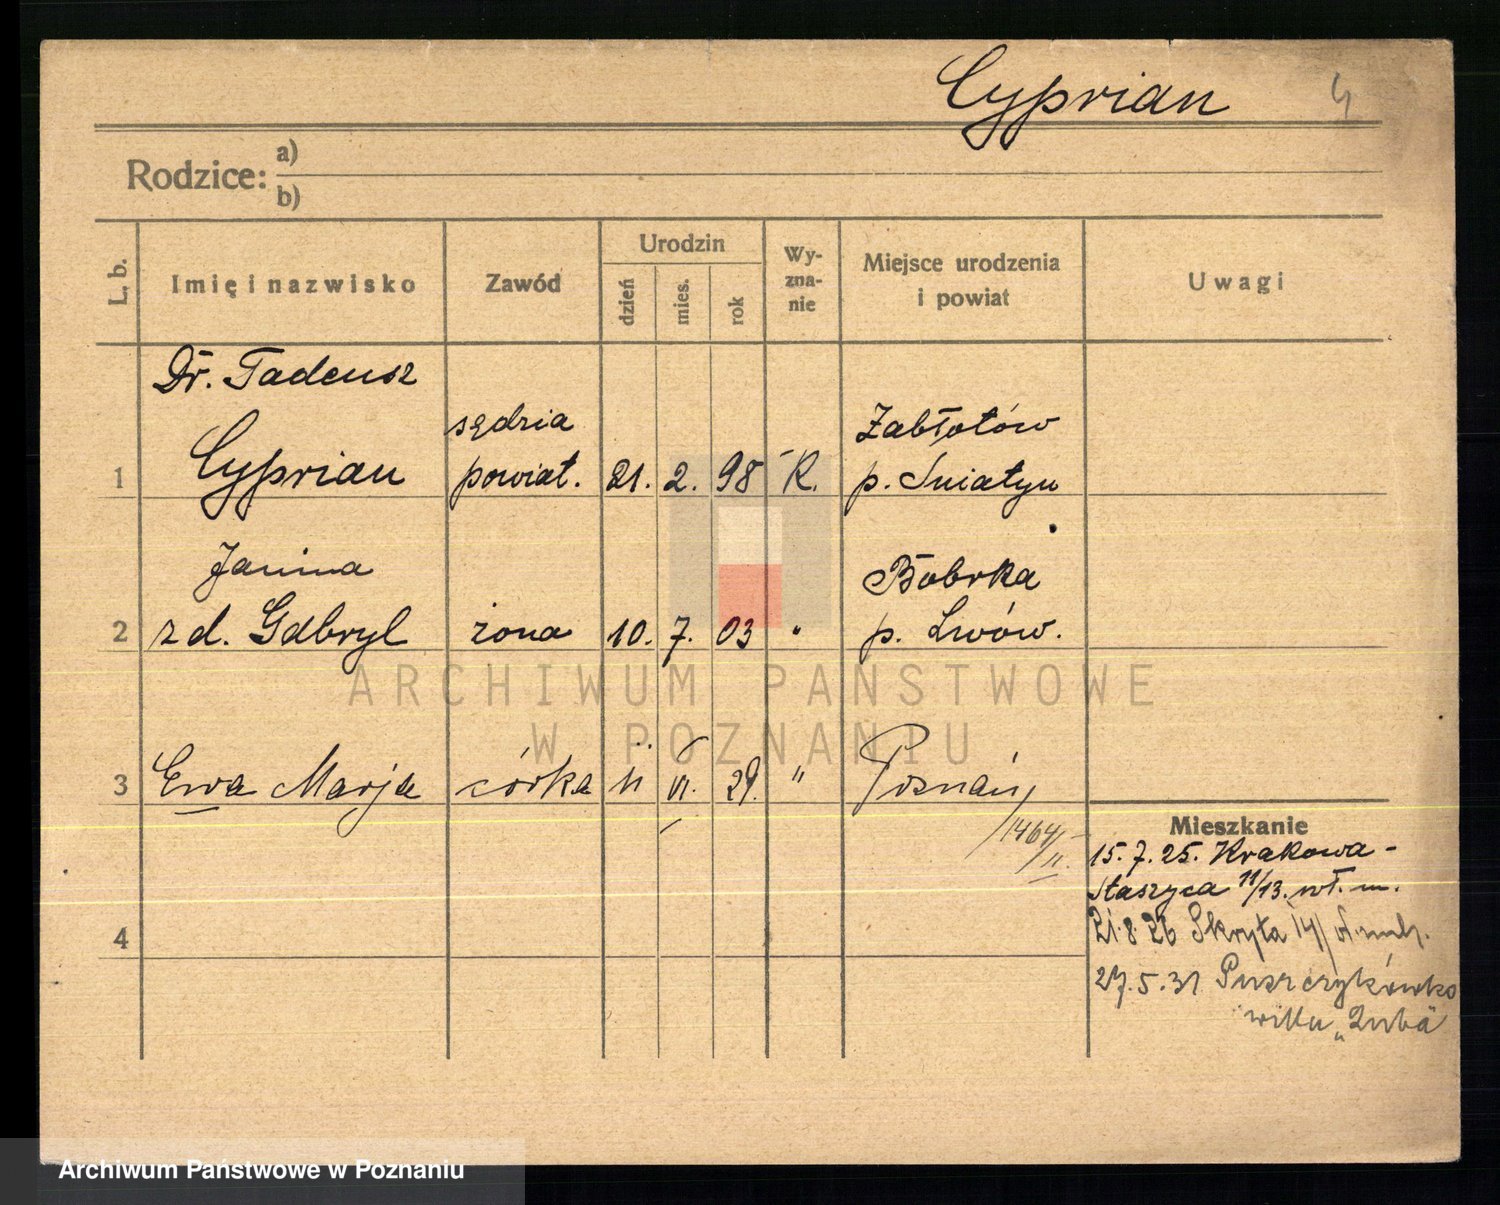 Cyprian
4
Rodzice: a)
b)
L. b.
Imię i nazwisko
Zawód
Urodzin
dzień
mies.
rok
Wy-
zna-
nie
Miejsce urodzenia
i powiat
Uwagi
Dr. Tadeusz
sędzia
Zabłotów
1 Cyprian powiat. 21. 2. 98 R. p. Śniatyn
Janina
Bóbrka
2 z d. Gabryl żona 10. 7. 03 " p. Lwów.
ARCHIWUM PAŃSTWOWE
W POZNANIU
3 Ewa Marja córka 11 VI. 29. " Poznań
1464/II.
Mieszkanie
15. 7. 25. Krakowa -
Staszyca 11/13. wł. m.
21. 8. 26 Skryta 14/
4
27. 5. 31 Puszczykówko
willa „Luba"
Archiwum Państwowe w Poznaniu